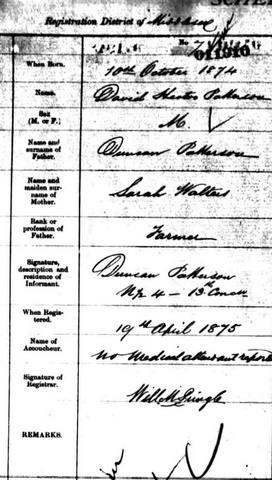 Registration District of Middlesex
No
011310
When Born.
10th October 1874
Name.
David Hector Patterson
Sex
(M. or F.)
M.
Name and
surname of
Father.
Duncan Patterson
Name and
maiden sur-
name of
Mother.
Sarah Walters
Rank or
profession of
Father.
Farmer
Signature,
description and
residence of
Informant.
Duncan Patterson
N½ 4 - 13th Concn
When Regis-
tered.
19th April 1875
Name of
Accoucheur.
No Medical attendant reported
Signature of
Registrar.
Will M
REMARKS.